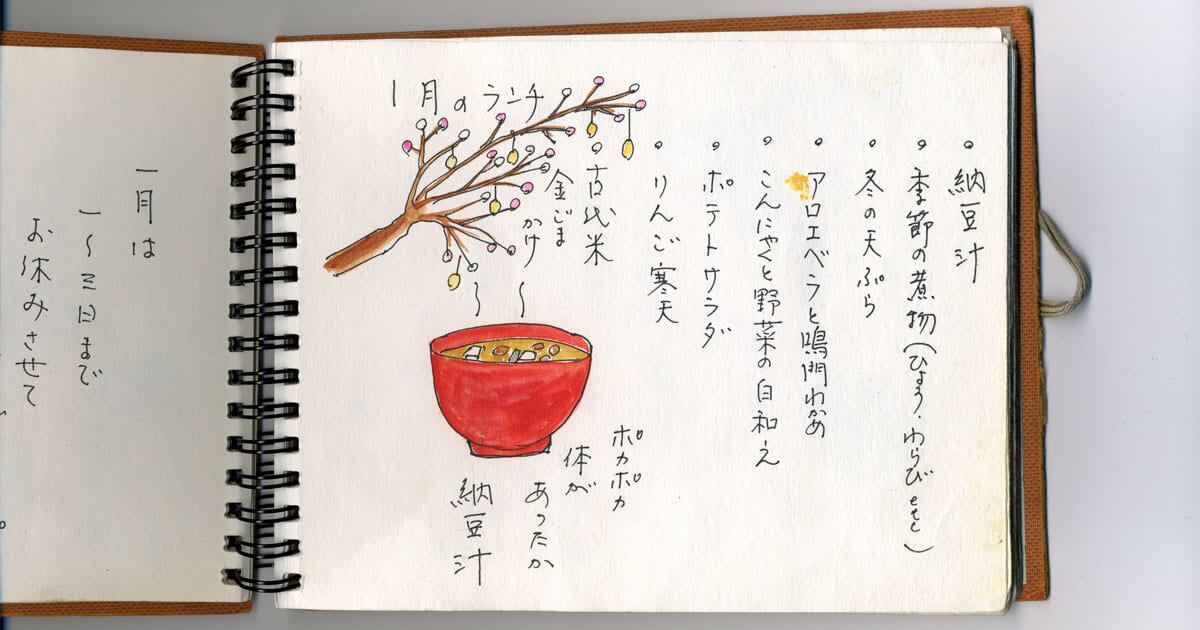 1月のランチ
。納豆汁
。季節の煮物(ひょう・わらびetc)
。冬の天ぷら
。アロエベラと鳴門わかめ
。こんにゃくと野菜の白和え
。ポテトサラダ
。りんご寒天
。古代米
金ごま
かけ
ポカポカ
体が
あったか
納豆汁
一月は
一〜三日まで
お休みさせて